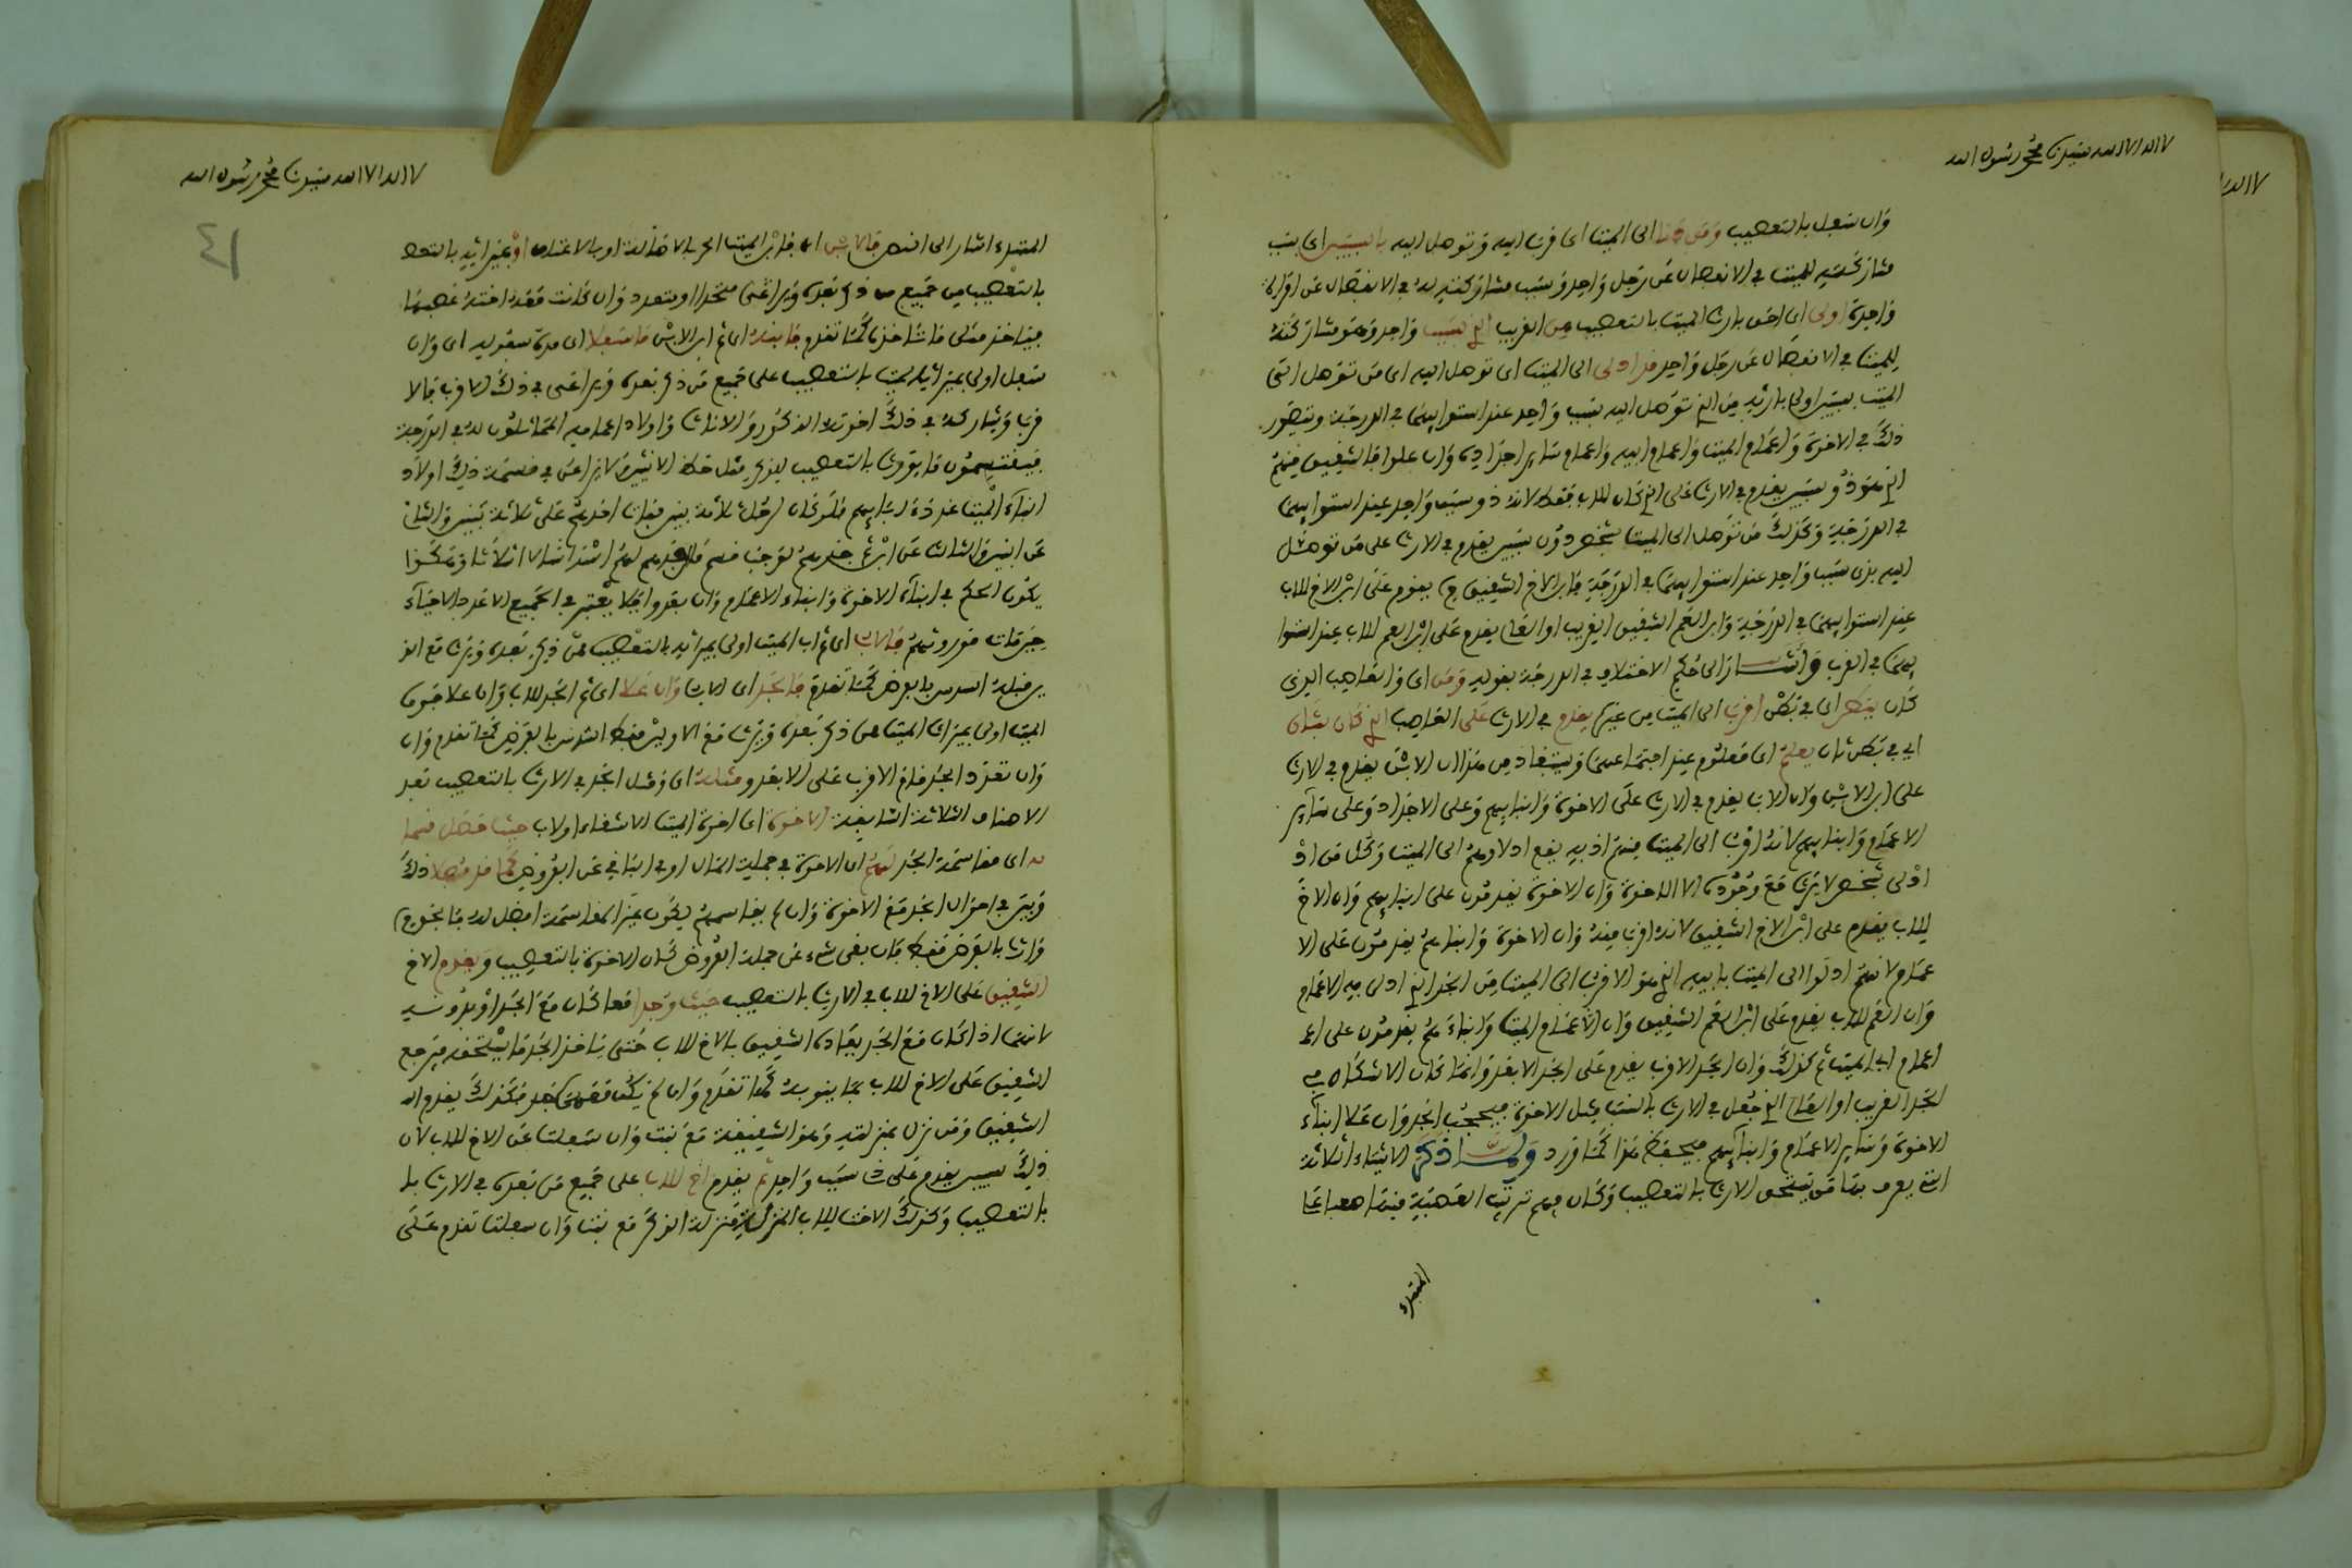 لا اله الا الله سيدنا محمد رسول الله
وان سفل بالتعصيب ومن دنا الى الميت اى قرب اليه وتوصل اليه بالسببين اى بسبب
مشاركته للميت في الانفصال عن رجل واحد وسبب مشاركته له في الانفصال عن امراة
واحدة اولى اى احق بارث الميت بالتعصيب من القريب الذي بسبب واحد وهو مشاركته
للميت في الانفصال عن رجل واحد قد ادلى الى الميت اى توصل اليه اى من توصل الى
الميت بسببين اولى بارثه من الذي توصل اليه بسبب واحد عند استوايهما في الدرجة ويتصور
ذلك في الاخوة واعمام الميت واعمام ابيه واعمام ساير اجداده وان علوا فالشقيق منهم
الذي هو ذو سببين يقدم في الارث على الذي كان للاب فقط لانه ذو سبب واحد عند استوايهما
في الدرجة وكذلك من توصل الى الميت بشخص ذون سببين يقدم في الارث على من توصل
اليه بذى سبب واحد عند استوايهما في الدرجة فابن الاخ الشقيق يقدم على ابن الاخ للاب
عند استوايهما في الدرجة وابن العم الشقيق القريب او القاص يقدم على ابن العم للاب عند استوا
يهما في القرب واشار الى حكم الاختلاف في الدرجة بقوله ومن اى والعاصب الذي
كان ببطن اى في بطن اقرب الى الميت من غيره يقدم في الارث على العاصب الذي كان بثان
اى في بطن ثان يعلم اى معلوم عند اجتماعهما ويستفاد من هذا ان الابن يقدم في الارث
على ابن الابن وان الاب يقدم في الارث على الاخوة وابنايهم وعلى الاجداد وعلى ساير
الاعمام وابنايهم لانه اقرب الى الميت منهم اذ به يقع ادلاوهم الى الميت وكل من اد
ادلى بشخص لا يرث مع وجوده الا الاخوة وان الاخوة يقدمون على ابنايهم وان الاخ
للاب يقدم على ابن الاخ الشقيق لانه اقرب منه وان الاخوة وابناءهم يقدمون على الا
عمام لانهم ادلوا الى الميت بابيه الذي هو الاقرب الى الميت من الجد الذي ادلى به الاعمام
وان العم للاب يقدم على ابن العم الشقيق وان الاعمام الميت وابناءهم يقدمون على اعـ
اعمام اب الميت ثم كذلك وان الجد الاقرب يقدم على الجد الابعد وانما كان الاشكال في
الجد القريب او القاص الذي جعل في الارث بالنسب مثل الاخوة فيحجب الجد وان علا ابناء
الاخوة وساير الاعمام وابنايهم فيحفظ هذا كما ورد ولما ذكر الاشياء الثلاثة
التي يعرف بها من يستحق الارث بالتعصيب وكان فهم ترتيب العصبة منها صعبا على
المبتدء
لا اله الا الله سيدنا محمد رسول الله
٤١
المبتدء اشار الى النص فالابن اى فابن الميت الحر بالاصالة او بالاعتاق اولى بميراثه بالتعصـ
بالتعصيب من جميع من ذكر بعده ويراعى متحدا او متعدد وان كانت معه اخته عصبها
فياخذ مثلى ما تاخذ كما تقدم فابنه اى ثم ابن الابن فاسفلا اى مدة سفوله اى وان
سفل اولى بميراث الميت بالتعصيب على جميع من ذكر بعده ويراعى في ذلك الاقرب فالا
قرب ويشاركه في ذلك اخوته الذكور والاناث واولاد اعمامه المماثلون له في الدرجة
فيقتسمون ما يورث بالتعصيب للذكر مثل حظ الانثيين لا يراعى في قسمة ذلك اولاد
ابناء الميت عدد ابايهم فلو كان لرجل ثلاثة بنين فمات احدهم على ثلاثة بنين والثانى
عن ابنين والثالث عن ابن ثم جدهم لوجب قسم مال جدهم لهم اسداسا لا اثلاثا وهكذا
يكون الحكم في ابناء الاخوة وابناء الاعمام وان بعدوا فلا يعتبر في الجميع الا عدد الاحياء
حين مات موروثهم فالاب اى ثم اب الميت اولى بميراثه بالتعصيب ممن ذكر بعده ويرث مع الذ
ين قبله السدس بالفرض كما تقدم فالجد اى الاب وان علا اى ثم الجد للاب وان علا فهو
الميت اولى بميراث الميت ممن ذكر بعده ويرث مع الاولين فقط السدس بالفرض كما تقدم وان
وان تعدد الجد قدم الاقرب على الابعد ومثله اى ومثل الجد في الارث بالتعصيب بعد
الاصناف الثلاثة السابقة الاخوة اى اخوة الميت الاشقاء او لاب حيث فضل قسما
له اى مقاسمة الجد لهم اى الاخوة في جملة المال او في الباقي عن الفروض كما قد فصلا ذلك
وبين في احوال الجد مع الاخوة وان لم يقاسمهم لكون غير المقاسمة افضل له فالخروج
وارث بالفرض فقط فان بقى شىء عن جملة الفروض كان الاخوة بالتعصيب ويقدم الاخ
الشقيق على الاخ للاب في الارث بالتعصيب حيث وجد معا كان مع الجد او بدونه
لانهما اذا كان مع الجد يعاد الشقيق بالاخ للاب حتى ياخذ الجد ما يستحقه فيرجع
الشقيق على الاخ للاب بما ينوبه كما تقدم وان لم يكن معهما جد فكذلك يقدم الـ
الشقيق ومن نزل بمنزلته وهو الشقيقة مع بنت وان سفلت عن الاخ للاب لان
ذلك سببين يقدم على ذى سبب واحد ثم يقدم اخ للاب على جميع من بعده في الارث بـ
بالتعصيب وكذلك الاخت للاب المنزلة منزلة الذكر مع بنت وان سفلت تقدم على